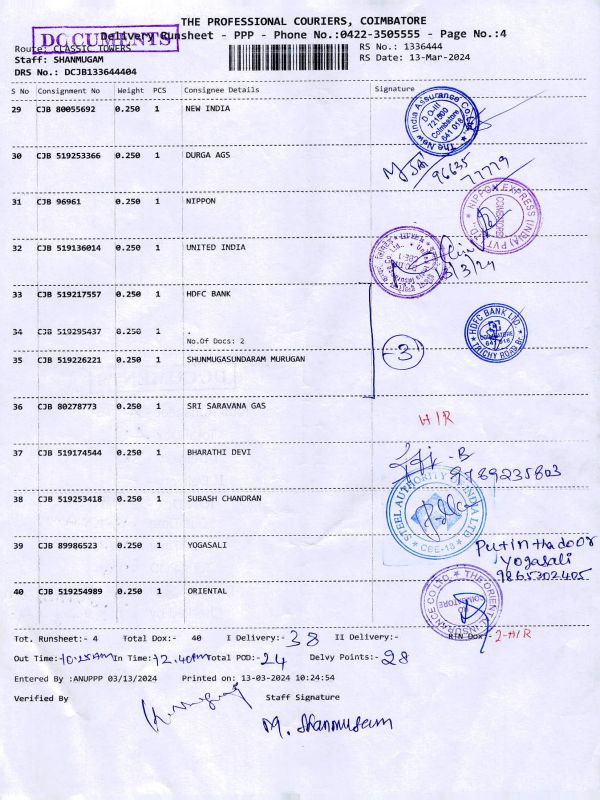 THE PROFESSIONAL COURIERS, COIMBATORE
DOCUMENTS
Delivery Runsheet - PPP - Phone No.:0422-3505555 - Page No.:4
Route: CLASSIC TOWERS
RS No.: 1336444
Staff: SHANMUGAM
RS Date: 13-Mar-2024
DRS No.: DCJB133644404
S No Consignment No Weight PCS Consignee Details Signature
29 CJB 80055692 0.250 1 NEW INDIA
The New India Assurance Co. Ltd. D.O-III 721500 Coimbatore 641 018
30 CJB 519253366 0.250 1 DURGA AGS
96635
77779
31 CJB 96961 0.250 1 NIPPON
NIPPON EXPRESS (INDIA) PVT. LTD. COIMBATORE
32 CJB 519136014 0.250 1 UNITED INDIA
13/3/24
33 CJB 519217557 0.250 1 HDFC BANK
34 CJB 519295437 0.250 1 .
No.Of Docs: 2
HDFC BANK LTD. COIMBATORE 641 018 TRICHY ROAD Br.
3
35 CJB 519226221 0.250 1 SHUNMUGASUNDARAM MURUGAN
36 CJB 80278773 0.250 1 SRI SARAVANA GAS
H/R
37 CJB 519174544 0.250 1 BHARATHI DEVI
9789235803
38 CJB 519253418 0.250 1 SUBASH CHANDRAN
STEEL AUTHORITY OF INDIA LTD. CBE-18
39 CJB 89986523 0.250 1 YOGASALI
Putin thadoor
Yogasali
9865302405
40 CJB 519254989 0.250 1 ORIENTAL
THE ORIENTAL INSURANCE CO LTD. COIMBATORE
Tot. Runsheet:- 4 Total Dox:- 40 I Delivery:- 38 II Delivery:- RTN Dox:- 2-H/R
Out Time:- 10.25AM In Time:- 12.40AM Total POD:- 24 Delvy Points:- 28
Entered By :ANUPPP 03/13/2024 Printed on: 13-03-2024 10:24:54
Verified By Staff Signature
M. Shanmugam